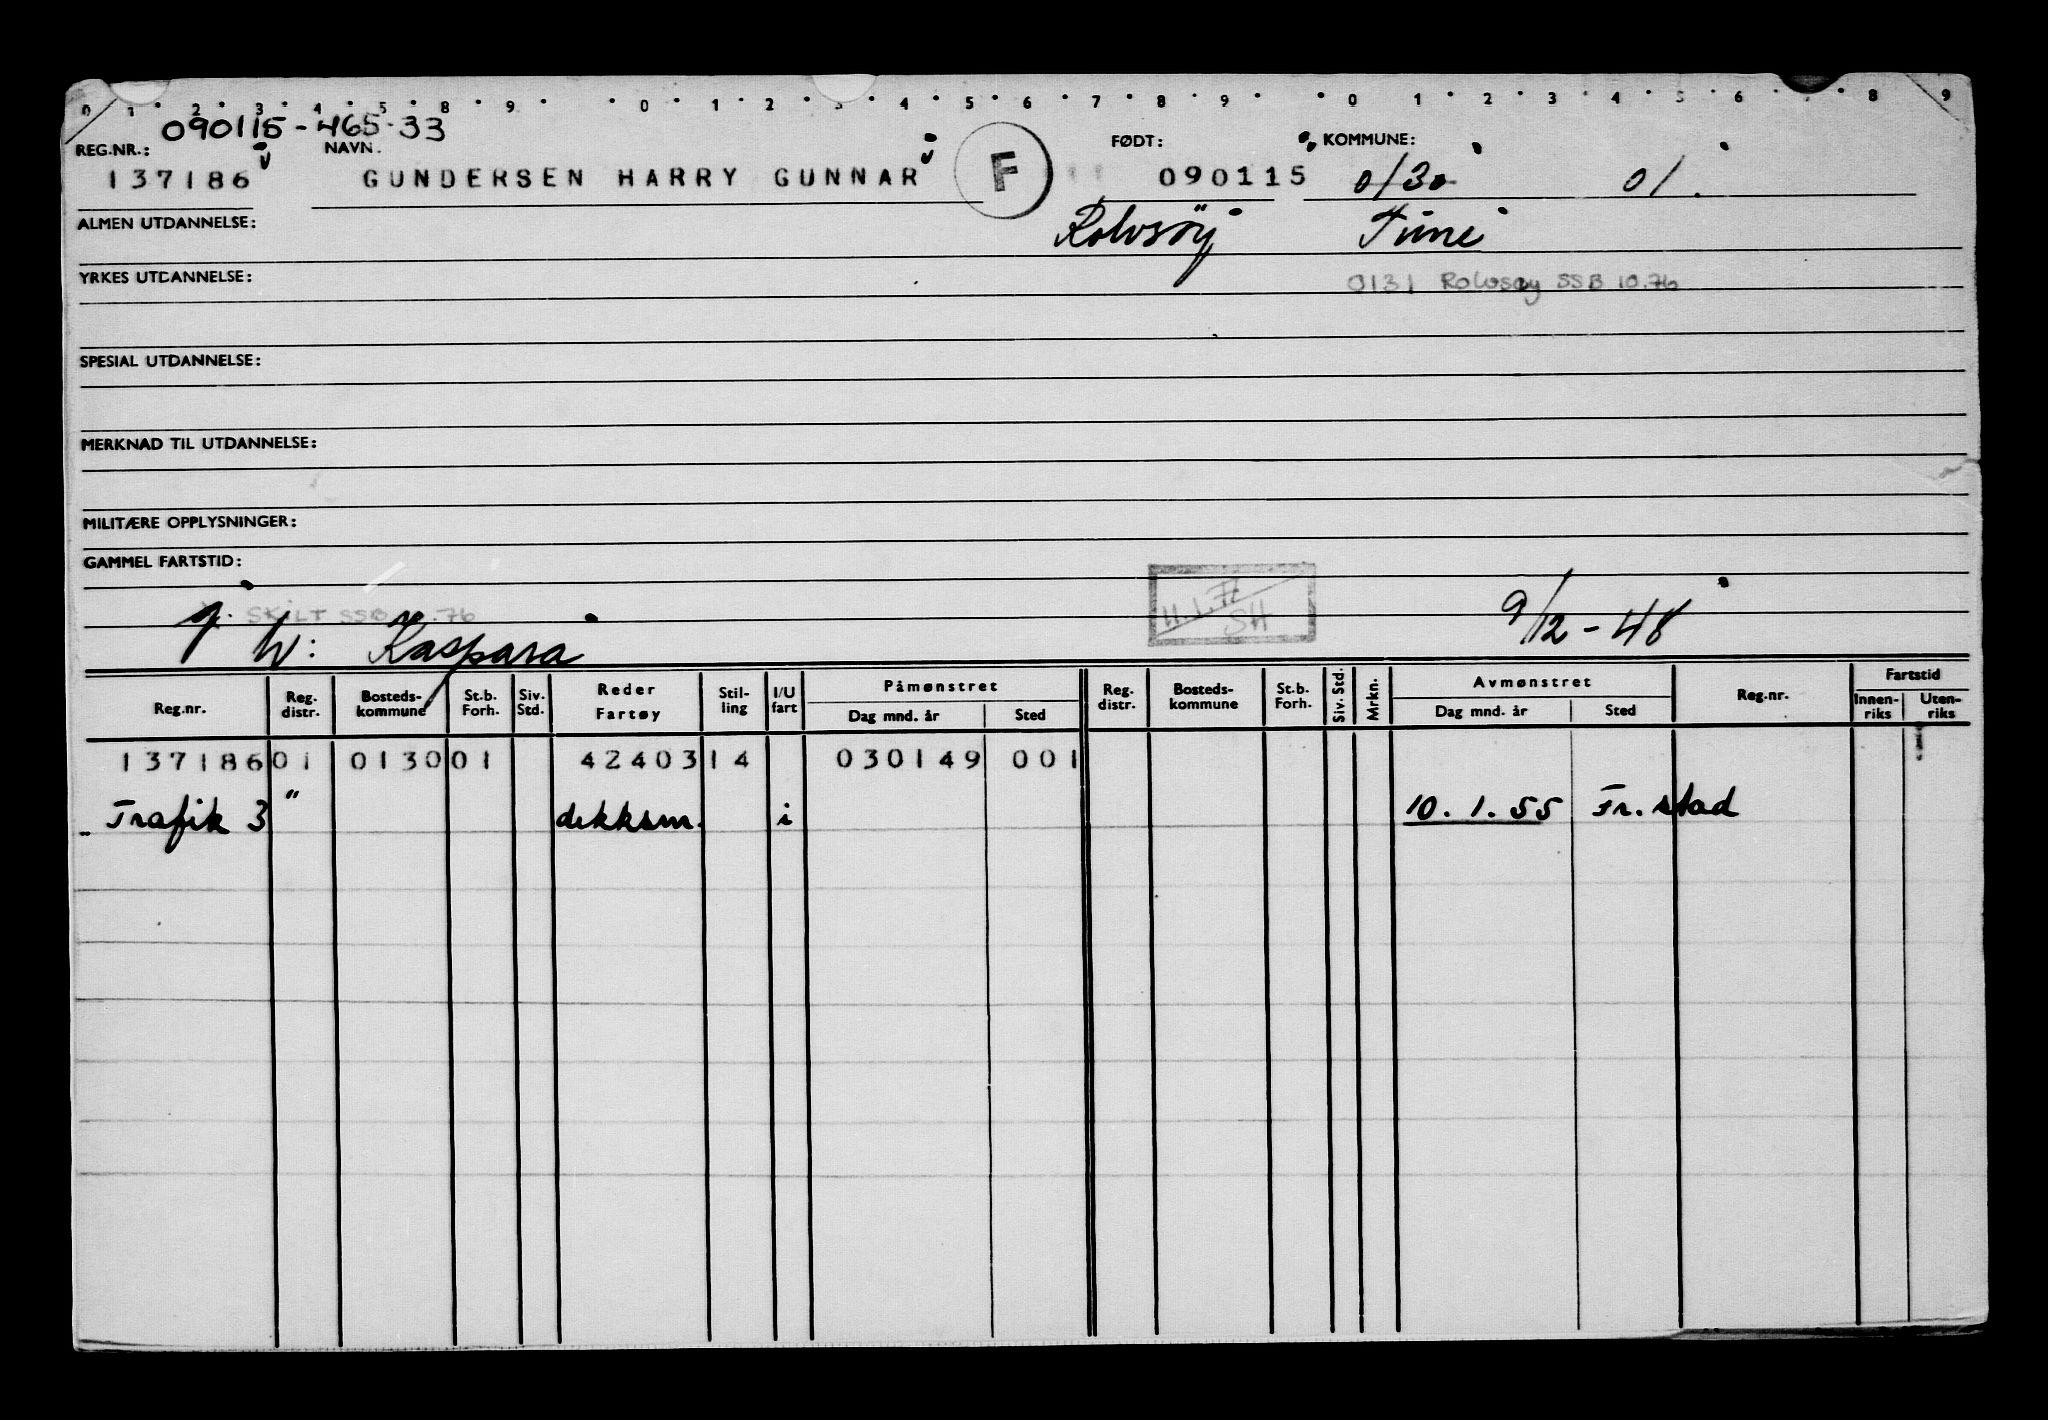 0 1 2 3 4 5 8 9 0 1 2 3 4 5 6 7 8 9 0 1 2 3 4 5 6 7 8 9
090115-465-33
REG.NR.: NAVN. FØDT: KOMMUNE:
137186 GUNDERSEN HARRY GUNNAR F 090115 0130 01.
ALMEN UTDANNELSE: Rolvsöy Tune
YRKES UTDANNELSE: 0131 Rolvsøy SSB 10.76
SPESIAL UTDANNELSE:
MERKNAD TIL UTDANNELSE:
MILITÆRE OPPLYSNINGER:
GAMMEL FARTSTID:
g. SKILT SSB 76 11.1.77 SH 9/12-48
W: Kaspara
Reg.nr. Reg. distr. Bosteds- kommune St.b. Forh. Siv. Std. Reder Fartøy Stil- ling I/U fart Påmønstret Dag mnd. år Sted Reg. distr. Bosteds- kommune St.b. Forh. Siv. Std. Mrkn. Avmønstret Dag mnd. år Sted Reg.nr. Fartstid Innen- riks Uten- riks
137186 01 0130 01 42403 14 030149 001
" Trafik 3 " dekksm. i 10.1.55 Fr.stad